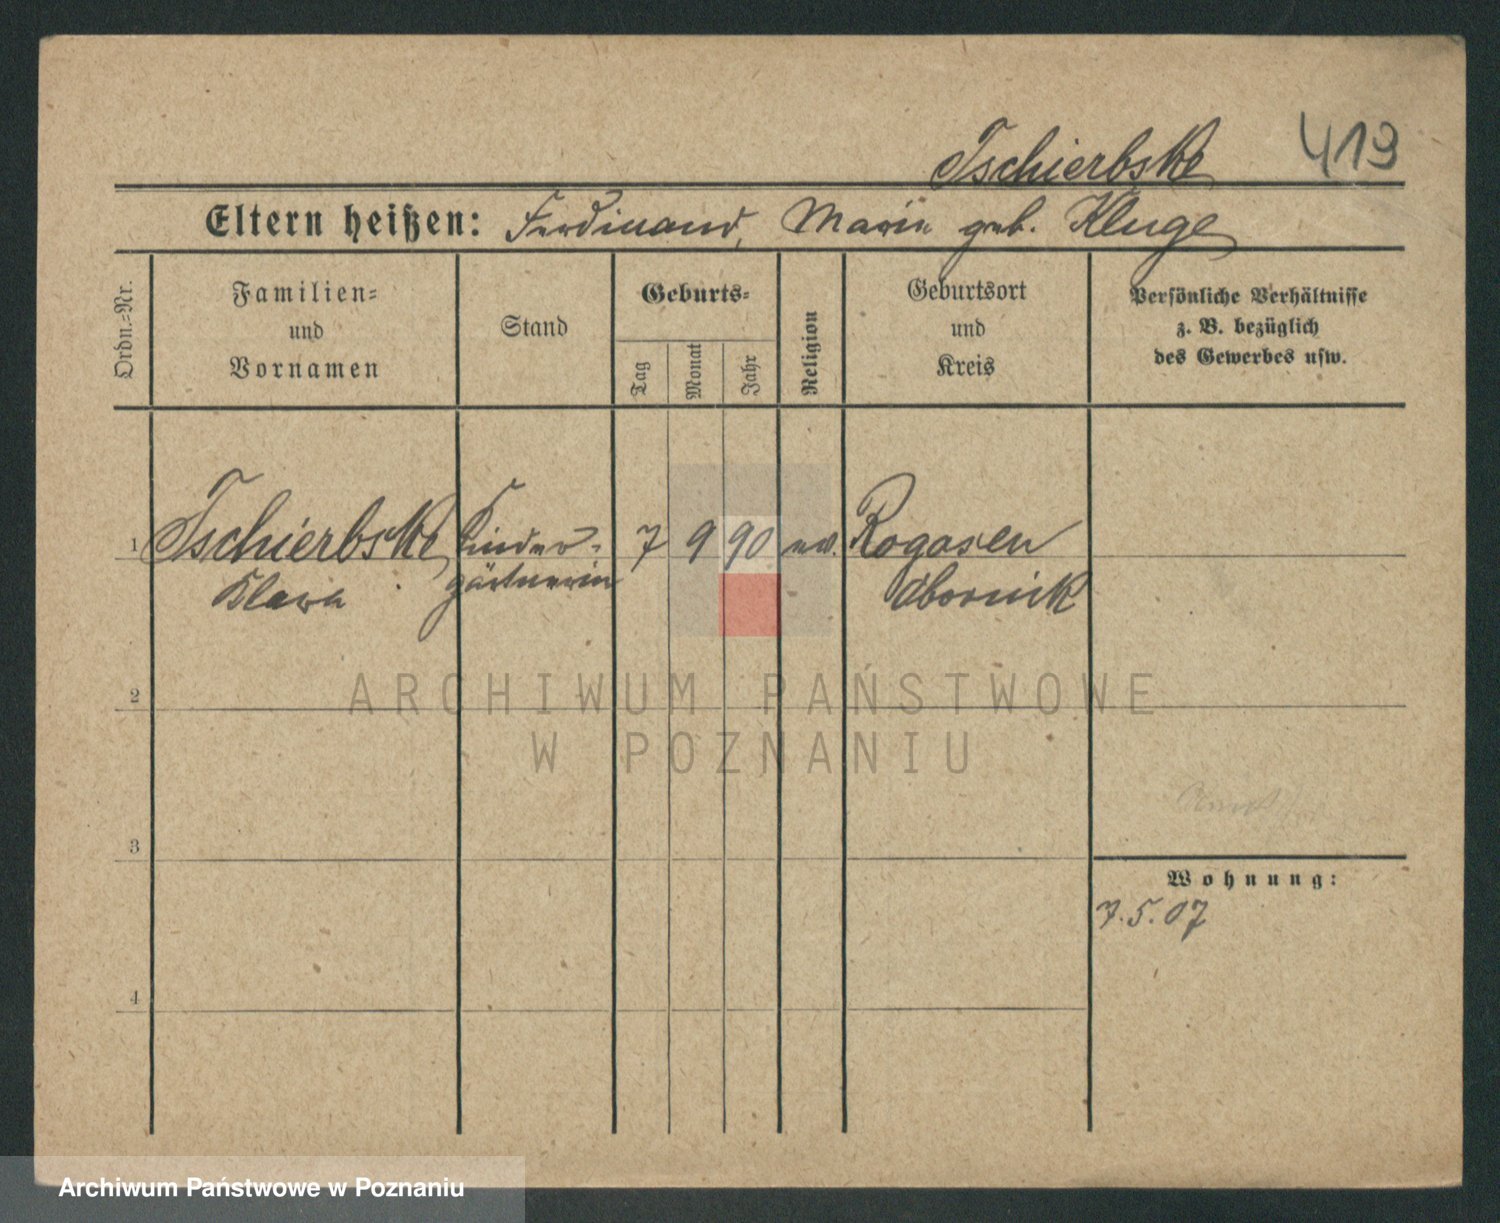 Tschierbske 419
Eltern heißen: Ferdinand, Marie geb. Kluge
Ordn.-Nr.
Familien-
und
Vornamen
Stand
Geburts-
Tag
Monat
Jahr
Religion
Geburtsort
und
Kreis
Persönliche Verhältnisse
z. B. bezüglich
des Gewerbes usw.
1 Tschierbske Kinder- 7 9 90 ev. Rogasen
Klara gärtnerin Obornik
2
ARCHIWUM PAŃSTWOWE
W POZNANIU
3
Wohnung:
7.5.07
4
Archiwum Państwowe w Poznaniu